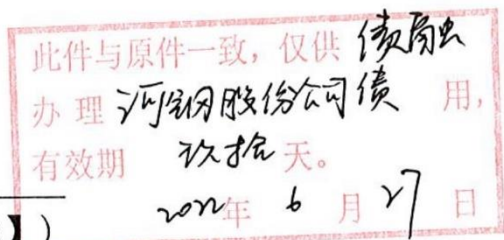 此件与原件一致，仅供 债融出
办理 河钢股份公司债 用，
有效期 玖拾 天。
2022年 6 月 27 日
】）